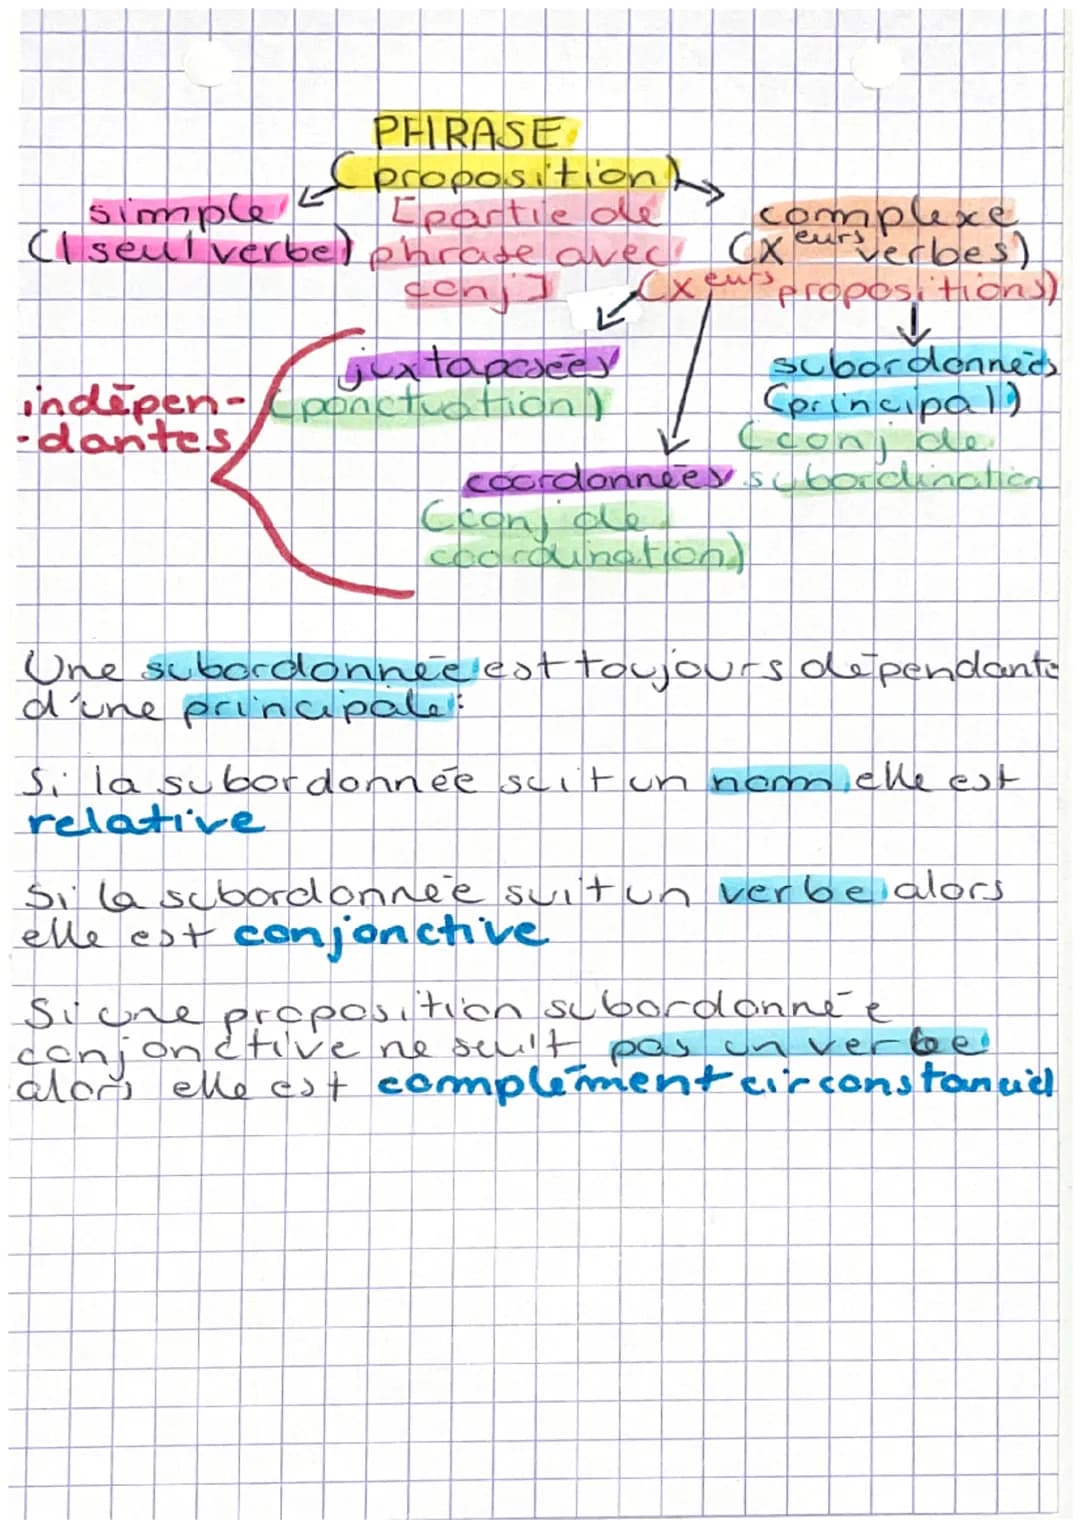 PHRASE
(proposition)
simple
(1 seul verbe)
[partie de
phrase avec
conj]
complexe
(xeurs verbes)
(xeurs propositions)
indépen-
-dantes
juxtaposées
(ponctuation)
coordonnées
(conj de
coordination)
subordonnées
(principal)
(conj de
subordination
Une subordonnée est toujours dépendante
d'une principale:
Si la subordonnée suit un nom, elle est
relative
Si la subordonnée suit un verbe alors
elle est conjonctive
Si une proposition subordonnée
conjonctive ne suit pas un verbe
alors elle est complément circonstanciel